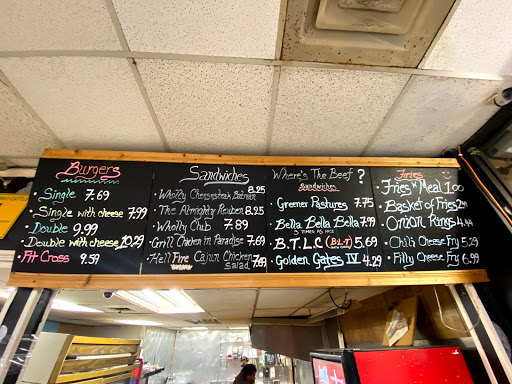 Burgers
Single 7.69
Single with cheese 7.99
Double 9.99
Double with cheese 10.29
Cross 9.59
Sandwiches
Wholly Cheesesteak Batman 8.95
The Almighty Reuben 8.95
Wholly Club 7.89
Grill Chicken in Paradise 7.69
Hell Fire Cajun Chicken Salad 7.69
Where's The Beef?
Sandwiches
Greener Pastures 7.75
Bella Bella Bella 7.99
3 TIMES AS NICE
B.T.L.C (B-L-T) 5.69
Golden Gates IV 4.29
Fries
Fries w/ Meal 1.00
Basket of Fries
Onion Rings 4.44
Chili Cheese Fry 5.29
Filly Cheese Fry 6.99